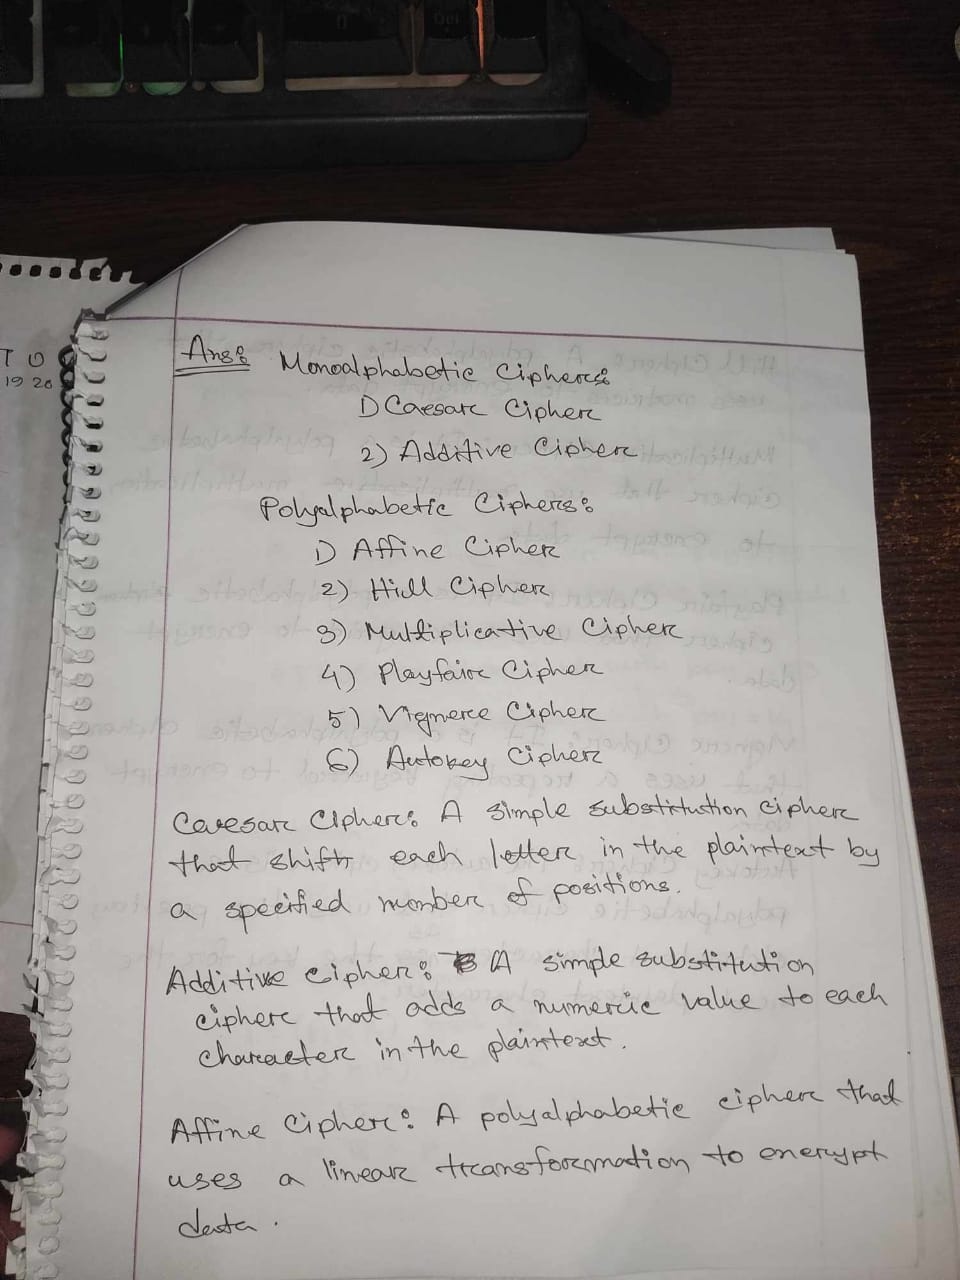 Del
T U
19 20
Ans:
Monoalphabetic Ciphers:
1) Caesar Cipher
2) Additive Cipher
Polyalphabetic Ciphers:
1) Affine Cipher
2) Hill Cipher
3) Multiplicative Cipher
4) Playfair Cipher
5) Vignere Cipher
6) Autokey Cipher
Caesar Cipher: A simple substitution cipher
that shifts each letter in the plaintext by
a specified number of positions.
Additive cipher: A simple substitution
cipher that adds a numeric value to each
character in the plaintext.
Affine Cipher: A polyalphabetic cipher that
uses a linear transformation to encrypt
data.